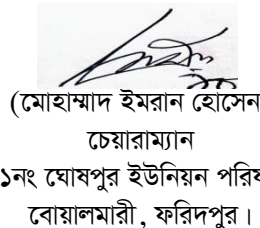 (মোহাম্মাদ ইমরান হোসেন
চেয়ারাম্যান
১নং ঘোষপুর ইউনিয়ন পরিষ
বোয়ালমারী, ফরিদপুর।